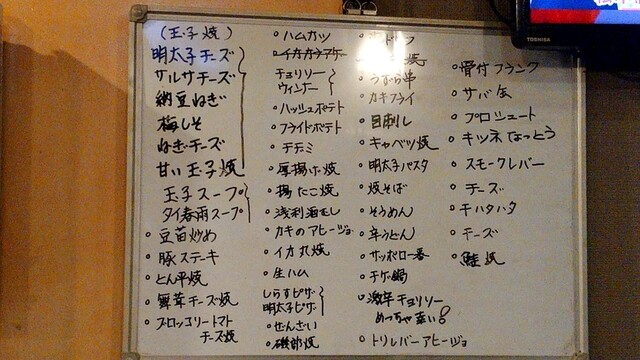 (玉子焼)
明太子チーズ
サルサチーズ
納豆ねぎ
梅しそ
ねぎチーズ
甘い玉子焼
玉子スープ
タイ春雨スープ
○ 豆苗炒め
○ 豚ステーキ
○ とん平焼
○ 舞茸チーズ焼
○ ブロッコリートマト
チーズ焼
○ ハムカツ
○ イカカラアゲ
○ チョリソー
ウィンナー
○ ハッシュポテト
○ フライドポテト
○ チヂミ
○ 厚揚げ焼
○ 揚たこ焼
○ 浅利酒むし
○ カキのアヒージョ
○ イカ丸焼
○ 生ハム
しらすピザ
明太子ピザ
○ ぜんざい
○ 磯部焼
○ うずら串
○ カキフライ
○ 目刺し
○ キャベツ焼
○ 明太子パスタ
○ 焼そば
○ そうめん
○ 辛うどん
○ サッポロ一番
○ チゲ鍋
○ 激辛チョリソー
めっちゃ辛い!
○ トリレバーアヒージョ
○ 骨付フランク
○ サバ缶
○ プロシュート
○ キツネなっとう
○ スモークレバー
○ チーズ
○ 干ハタハタ
○ チーズ
○ 鮭焼
TOSHIBA